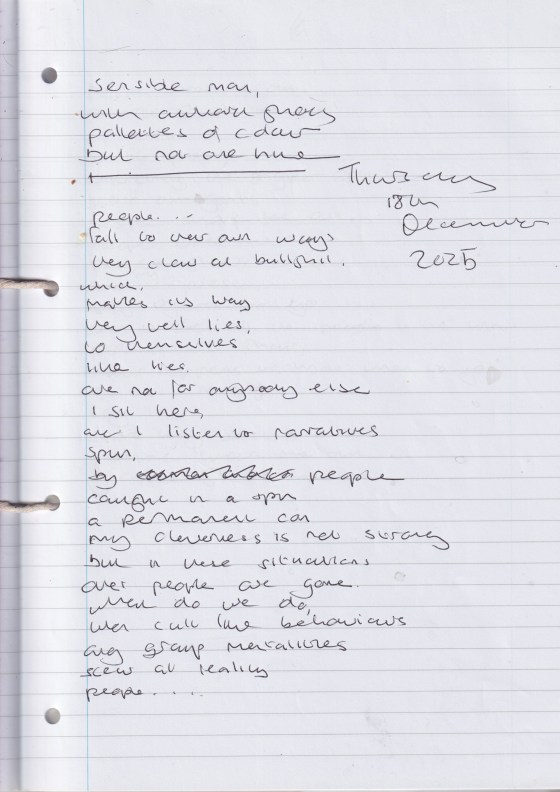 sensible man,
with
palletes of colour
but not one hue
Thursday
18th
December
2025
people...
fall to their own ways
very clever at bullshit.
which,
makes its way
very well lies,
to themselves
like lies.
are not for anybody else
I sit here,
and I listen to narratives
spun,
by people
caught in a spin
a permanent con
my cleverness is not strong
but in these situations
other people are gone.
what do we do,
with cult like behaviours
and group mentalities
skew at reality
people....